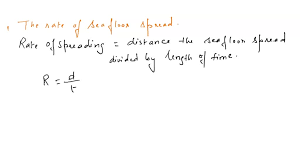 The rate of seafloor spread.
Rate of spreading = distance the seafloor spread
divided by length of time.
R = d/t